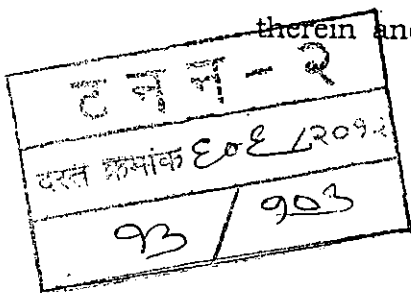 therein and
ट न न - २
दस्त क्रमांक ६०६ /२०१२
१३ / १०३